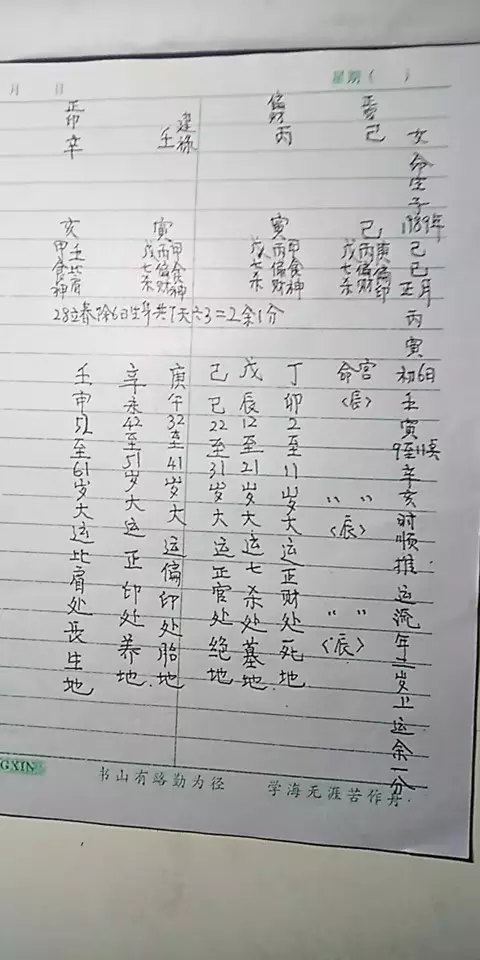 月 日
星期( )
女命生于1989年己巳正月丙寅初6日壬寅9至11点辛亥时顺推运流年二岁上运余一分
己
偏财丙
建禄壬
正印辛
己庚偏印丙偏财戊七杀
寅甲食神丙偏财戊七杀
寅甲食神丙偏财戊七杀
亥壬比肩甲食神
28立春除6日生年共7天六3=2余1分
命宫〈辰〉
" "〈辰〉
" "〈辰〉
丁卯2至11岁大运正财处死地
戊辰12至21岁大运七杀处墓地
己巳22至31岁大运正官处绝地
庚午32至41岁大运偏印处胎地
辛未42至51岁大运正印处养地
壬申52至61岁大运比肩处长生地
GXIN
书山有路勤为径
学海无涯苦作舟